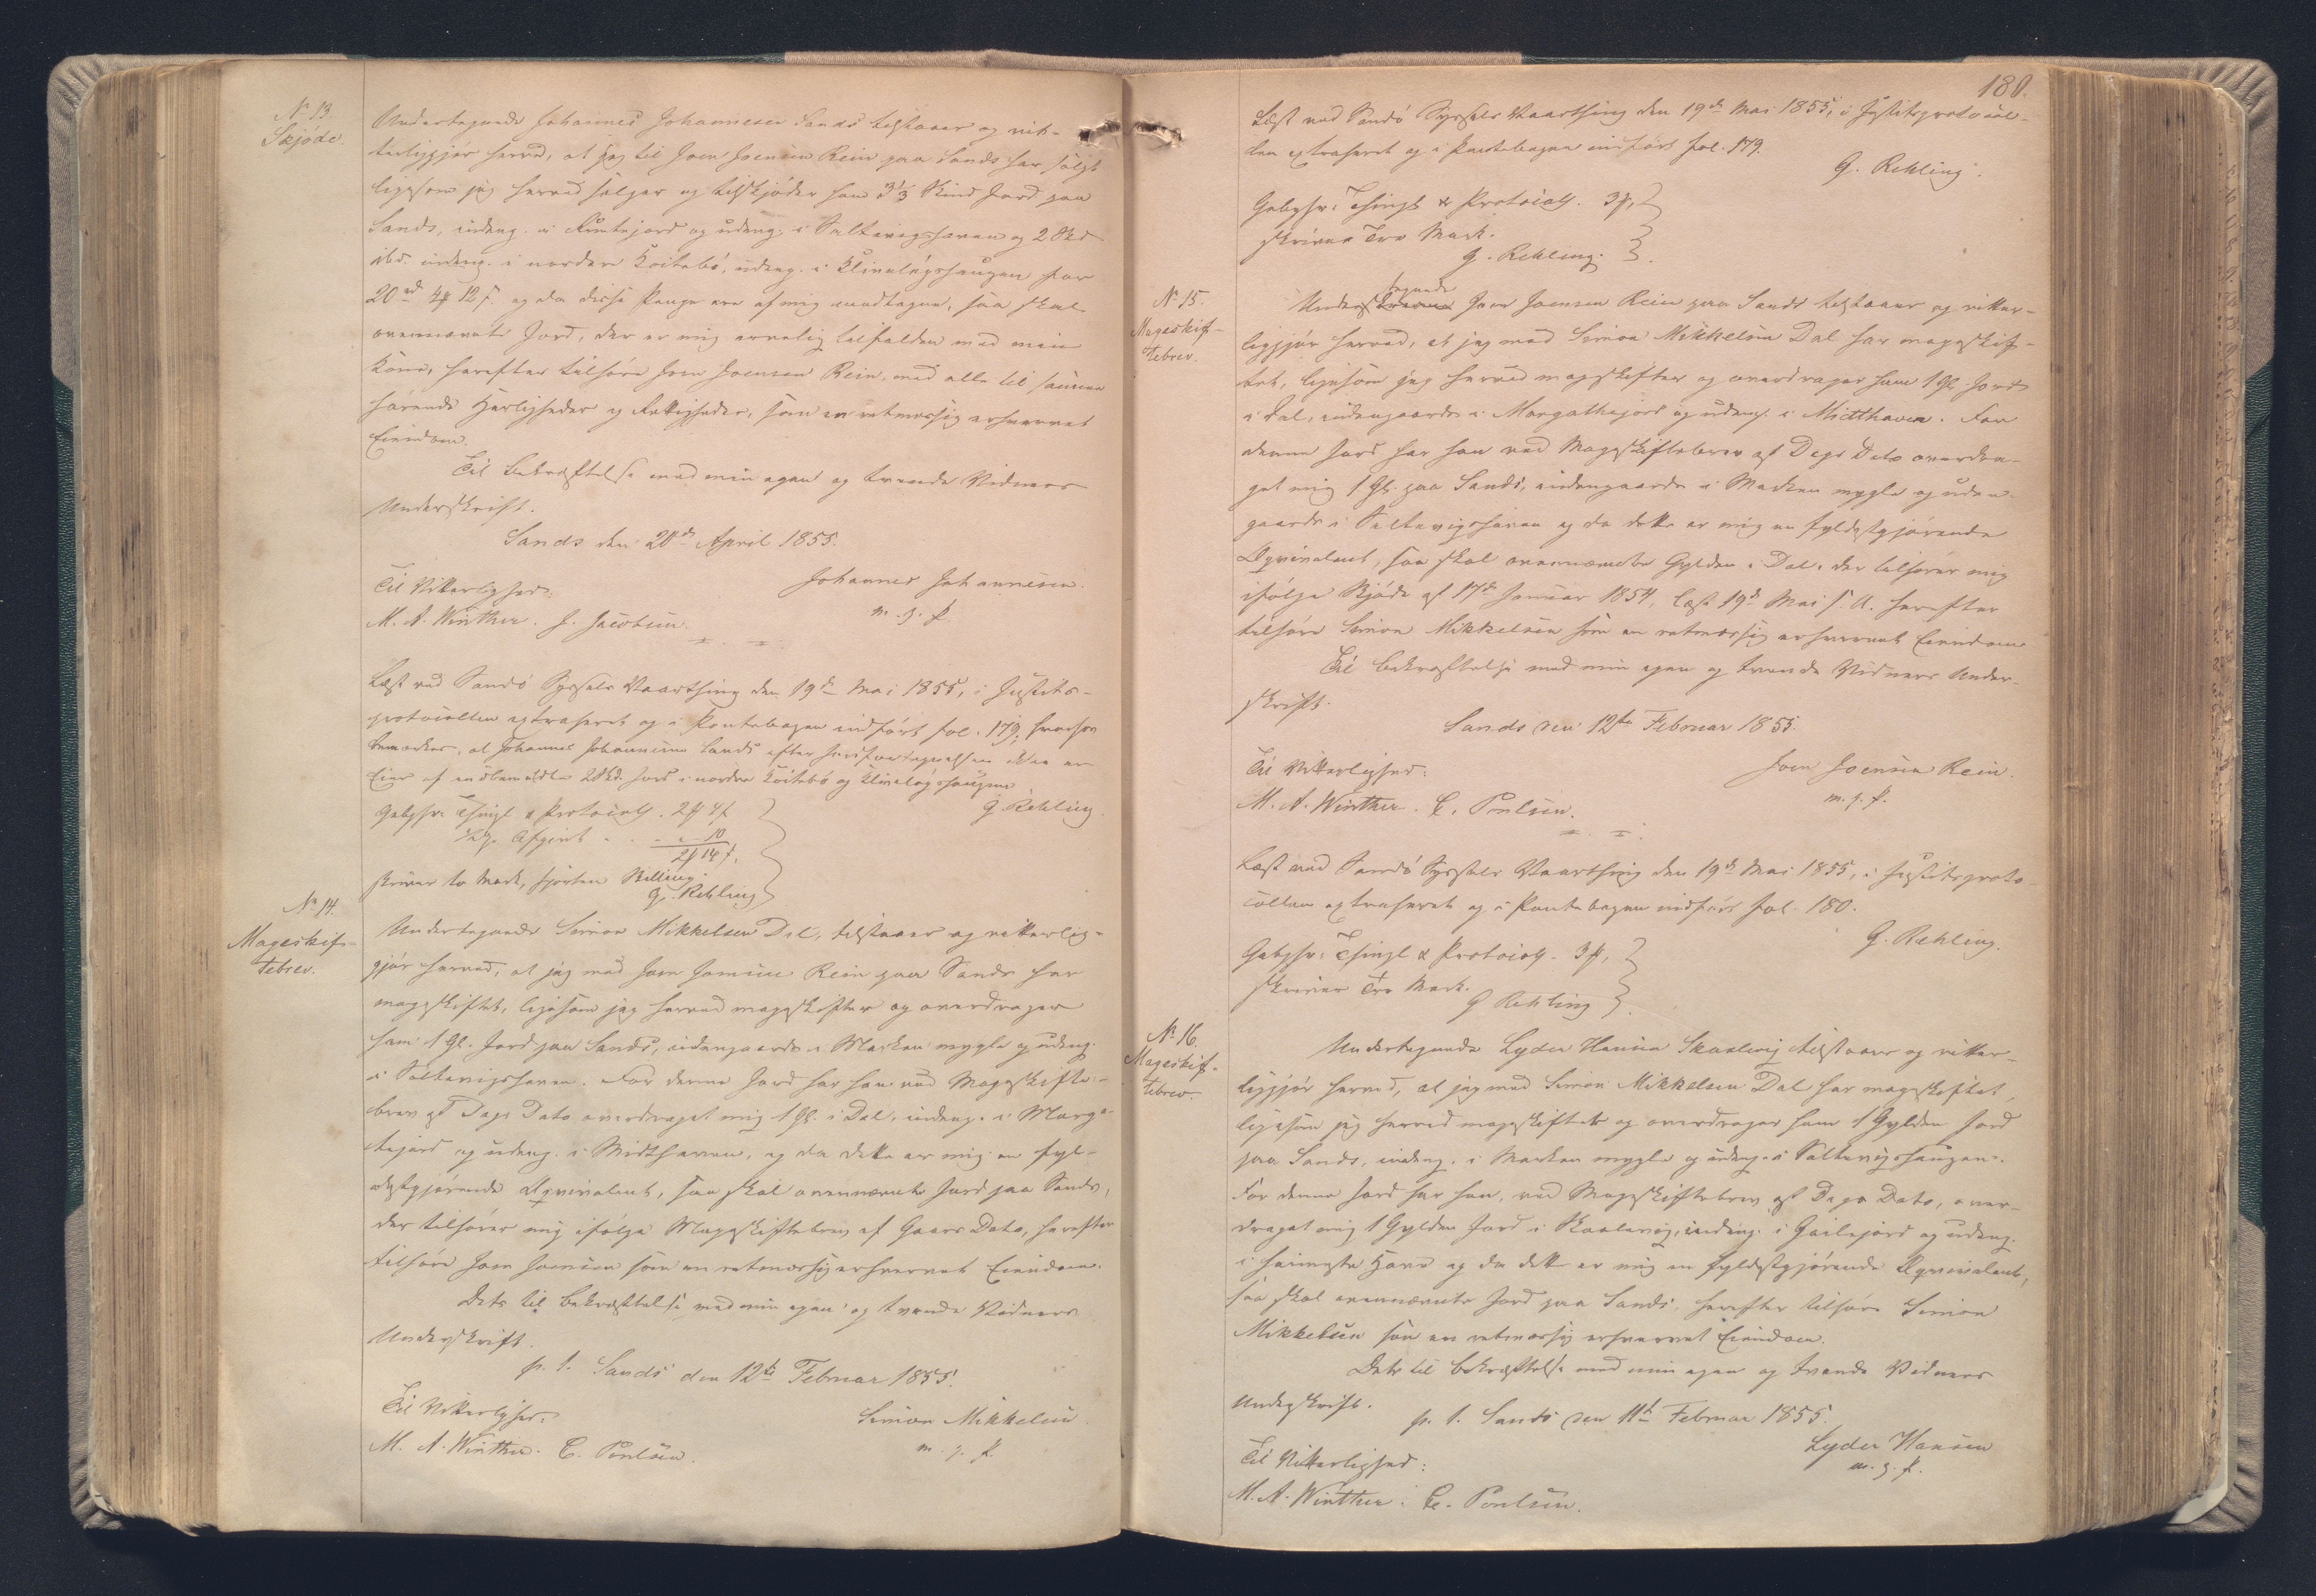 No 13.
Skjøde.
Undertegnede Johannes Johannesen Sands tilstaaer og vit-
terliggjør herved, at jeg til Joen Joensen Rein paa Sands har solgt
ligesom jeg herved sælger og tilskjøder ham 3 1/3 Skind Jord paa
Sands, indeng. i og udeng. i Saltevigshaven og 2 Skd
ibd. indeng. i nordre Koitebø, udeng. i Klivaløgshaugen for
20 rd 4 # 12 s. og da disse Penge ere af mig modtagne, saa skal
ovennævnte Jord, der er mig arvelig tilfalden med min
Kone, herefter tilhøre Joen Joensen Rein, med alle til samme
hørende Herligheder og Rettigheder, som en retmæssig erhvervet
Eiendom.
Til Bekræftelse med min egen og tvende Vidners
Underskrift.
Sands den 20de April 1855.
Til Vitterlighed:
Johannes Johannesen
M. A. Winther. J. Jacobsen.
m. f. P.
Læst ved Sandø Syssels Vaarthing den 19de Mai 1855, i Justits-
protocollen extraheret og i Pantebogen indført fol. 179; hvorhos
bemærkes, at Johannes Johannesen Sands efter ikke er
Eier af 2 Skd. Jord i nordre Koitebø og Klivaløgshaugen
G. Rehling
Gebyhr: Thingl. & Protocoll. 2 # 4 s
Afgivt . . . 10
2 # 14 s.
skriver to Mark, fjorten Skilling.
G. Rehling
No 14.
Mageskif-
tebrev.
Undertegnede Simon Mikkelsen Dal, tilstaaer og vitterlig-
gjør herved, at jeg med Joen Joensen Rein paa Sands har
mageskiftet, ligesom jeg herved mageskifter og overdrager
ham 1 Gl. Jord paa Sands, indengaards i Marken mygle og udeng.
i Saltevigshaven. For denne Jord har han ved Mageskifte-
brev af Dags Dato overdraget mig 1 Gl. i Dal, indeng. i Marga-
tejord og udeng. i Midthaven, og da dette er mig en fyl-
destgjørende Æqvivalent, saa skal ovennævnte Jord paa Sands,
der tilhører mig ifølge Mageskiftebrev af Gaars Dato, herefter
tilhøre Joen Joensen som en retmæssig erhvervet Eiendom.
Dets til Bekræftelse med min egen og tvende Vidners
Underskrift.
p. t. Sands den 12te Februar 1855.
Til Vitterlighed:
Simon Mikkelsen
M. A. Winther. C. Poulsen.
m. f. P.
180.
Læst ved Sandø Syssels Vaarthing den 19de Mai 1855, i Justitsprotocol-
len extraheret og i Pantebogen indført fol. 179.
G. Rehling.
Gebyhr: Thingl. & Protocoll. 3 #,
skriver Tre Mark.
G. Rehling.
No 15.
Mageskif-
tebrev.
tegnede
Underskrevne Joen Joensen Rein paa Sands tilstaaer og vitter-
ligjør herved, at jeg med Simon Mikkelsen Dal har mageskif-
tet, ligesom jeg herved mageskifter og overdrager ham 1 Gl. Jord
i Dal, indengaards i Margathejord og udeng. i Midthaven. For
denne Jord har han ved Mageskiftebrev af Dags Dato overdra-
get mig 1 Gl. paa Sands, indengaards i Marken mygle og uden-
gaards i Saltevigshaven og da dette er mig en fyldestgjørende
Æqvivalent, saa skal ovennævnte Gylden i Dal, der tilhører mig
ifølge Skjøde af 17de Januar 1854, læst 19de Mai s. A. herefter
tilhøre Simon Mikkelsen som en retmæssig erhvervet Eiendom
Til Bekræftelse med min egen og tvende Vidners Under-
skrift.
Sands den 12te Februar 1855.
Til Vitterlighed:
Joen Joensen Rein.
M. A. Winther. C. Poulsen.
m. f. P.
Læst ved Sandø Syssels Vaarthing den 19de Mai 1855, i Justitsproto-
collen extraheret og i Pantebogen indført fol. 180.
G. Rehling.
Gebyhr: Thingl & Protocoll. 3 #,
skriver Tre Mark.
G Rehling
No 16.
Mageskif-
tebrev.
Undertegnede Lyder Hansen Skaalevig tilstaaer og vitter-
liggjør herved, at jeg med Simon Mikkelsen Dal har mageskiftet,
ligesom jeg herved mageskifter og overdrager ham 1 Gylden Jord
paa Sands, indeng. i Marken mygle og udeng. i Saltevigshaugen.
For denne Jord har han, ved Mageskiftebrev af Dags Dato, over-
draget mig 1 Gylden Jord i Skaalevig, indeng. i Gailejord og udeng.
i Have og da dette er mig en fyldestgjørende Æqvivalent,
saa skal ovennævnte Jord paa Sands, herefter tilhøre Simon
Mikkelsen som en retmæssig erhvervet Eiendom.
Dets til Bekræftelse med min egen og tvende Vidners
Underskrift.
p. t. Sands den 11te Februar 1855.
Lyder Hansen
Til Vitterlighed:
m. f. P.
M. A. Winther. C. Poulsen.